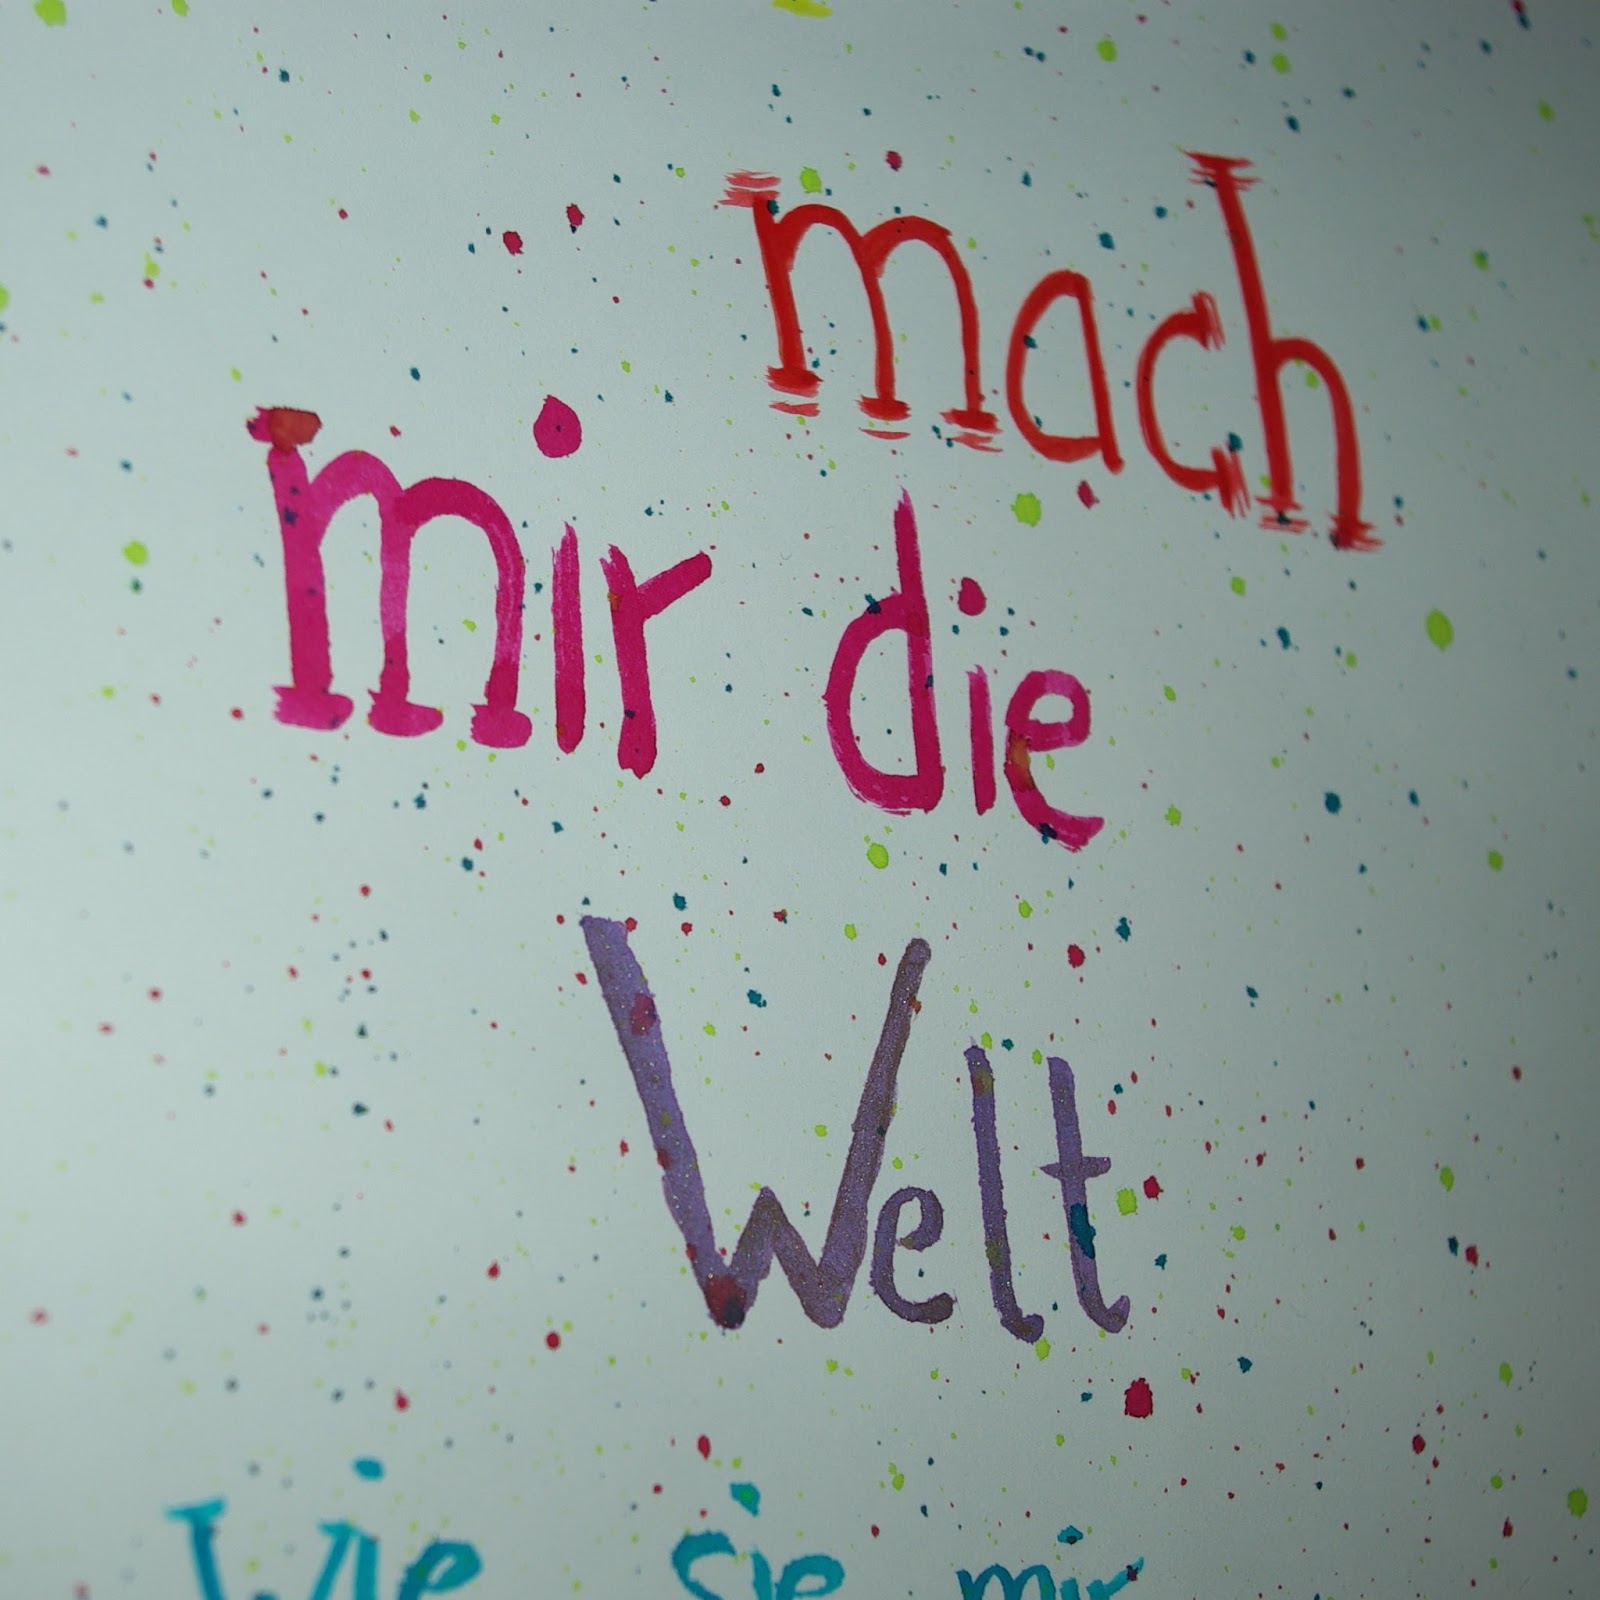 mach
mir die
Welt
Wie sie mir